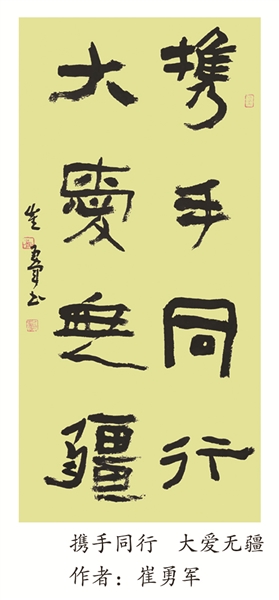 携手同行
大愛無疆
崔勇军书
携手同行 大爱无疆
作者：崔勇军